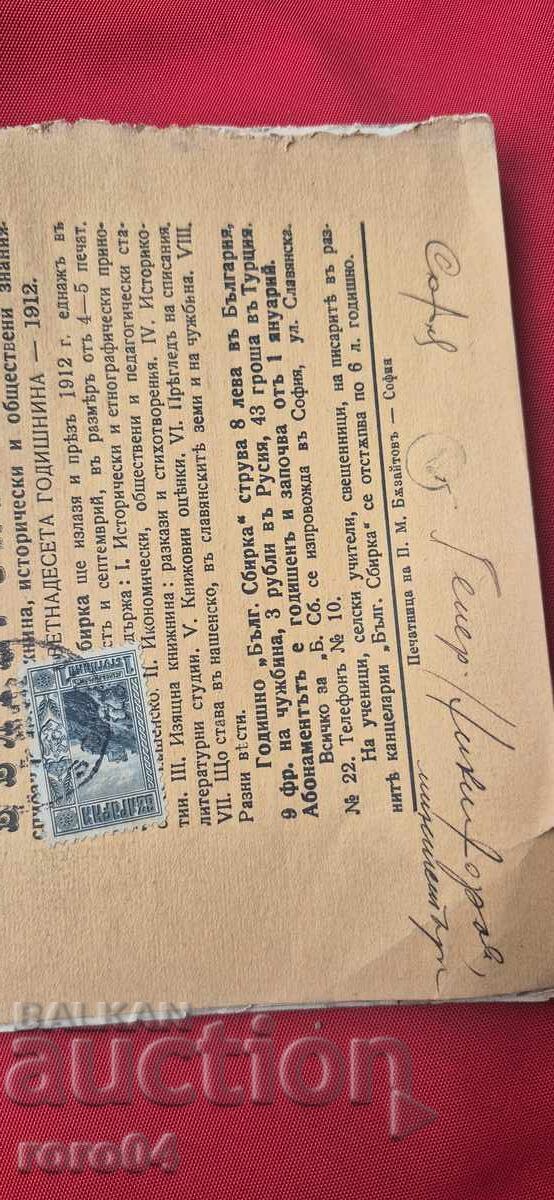 книжнина, исторически и обществени знания
ВЕТНАДЕСЕТА ГОДИШНИНА — 1912.
бирка ще излазя и прѣзъ 1912 г. еднажъ въ
стъ и септемврий, въ размѣръ отъ 4—5 печат.
държа: I. Исторически и етнографически прино-
нашенско. II. Икономически, обществени и педагогически ста-
тии. III. Изящна книжнина: разкази и стихотворения. IV. Историко-
литературни студии. V. Книжовни оцѣнки. VI. Прѣгледъ на списания.
VII. Що става въ нашенско, въ славянскитѣ земи и на чужбина. VIII.
Разни вѣсти.
Годишно „Бълг. Сбирка“ струва 8 лева въ България,
9 фр. на чужбина, 3 рубли въ Русия, 43 гроша въ Турция.
Абонаментътъ е годишенъ и започва отъ 1 януарий.
Всичко за „Б. Сб. се изпровожда въ София, ул. Славянска
№ 22. Телефонъ № 10.
На ученици, селски учители, свещенници, на писаритѣ въ раз-
нитѣ канцеларии „Бълг. Сбирка“ се отстѫпва по 6 л. годишно.
Печатница на П. М. Бѫзайтовъ — София
1 СТОТИНКА 1
БЪЛГАРИЯ
Генер. Никифоровъ,
BALKAN
auction
roro04